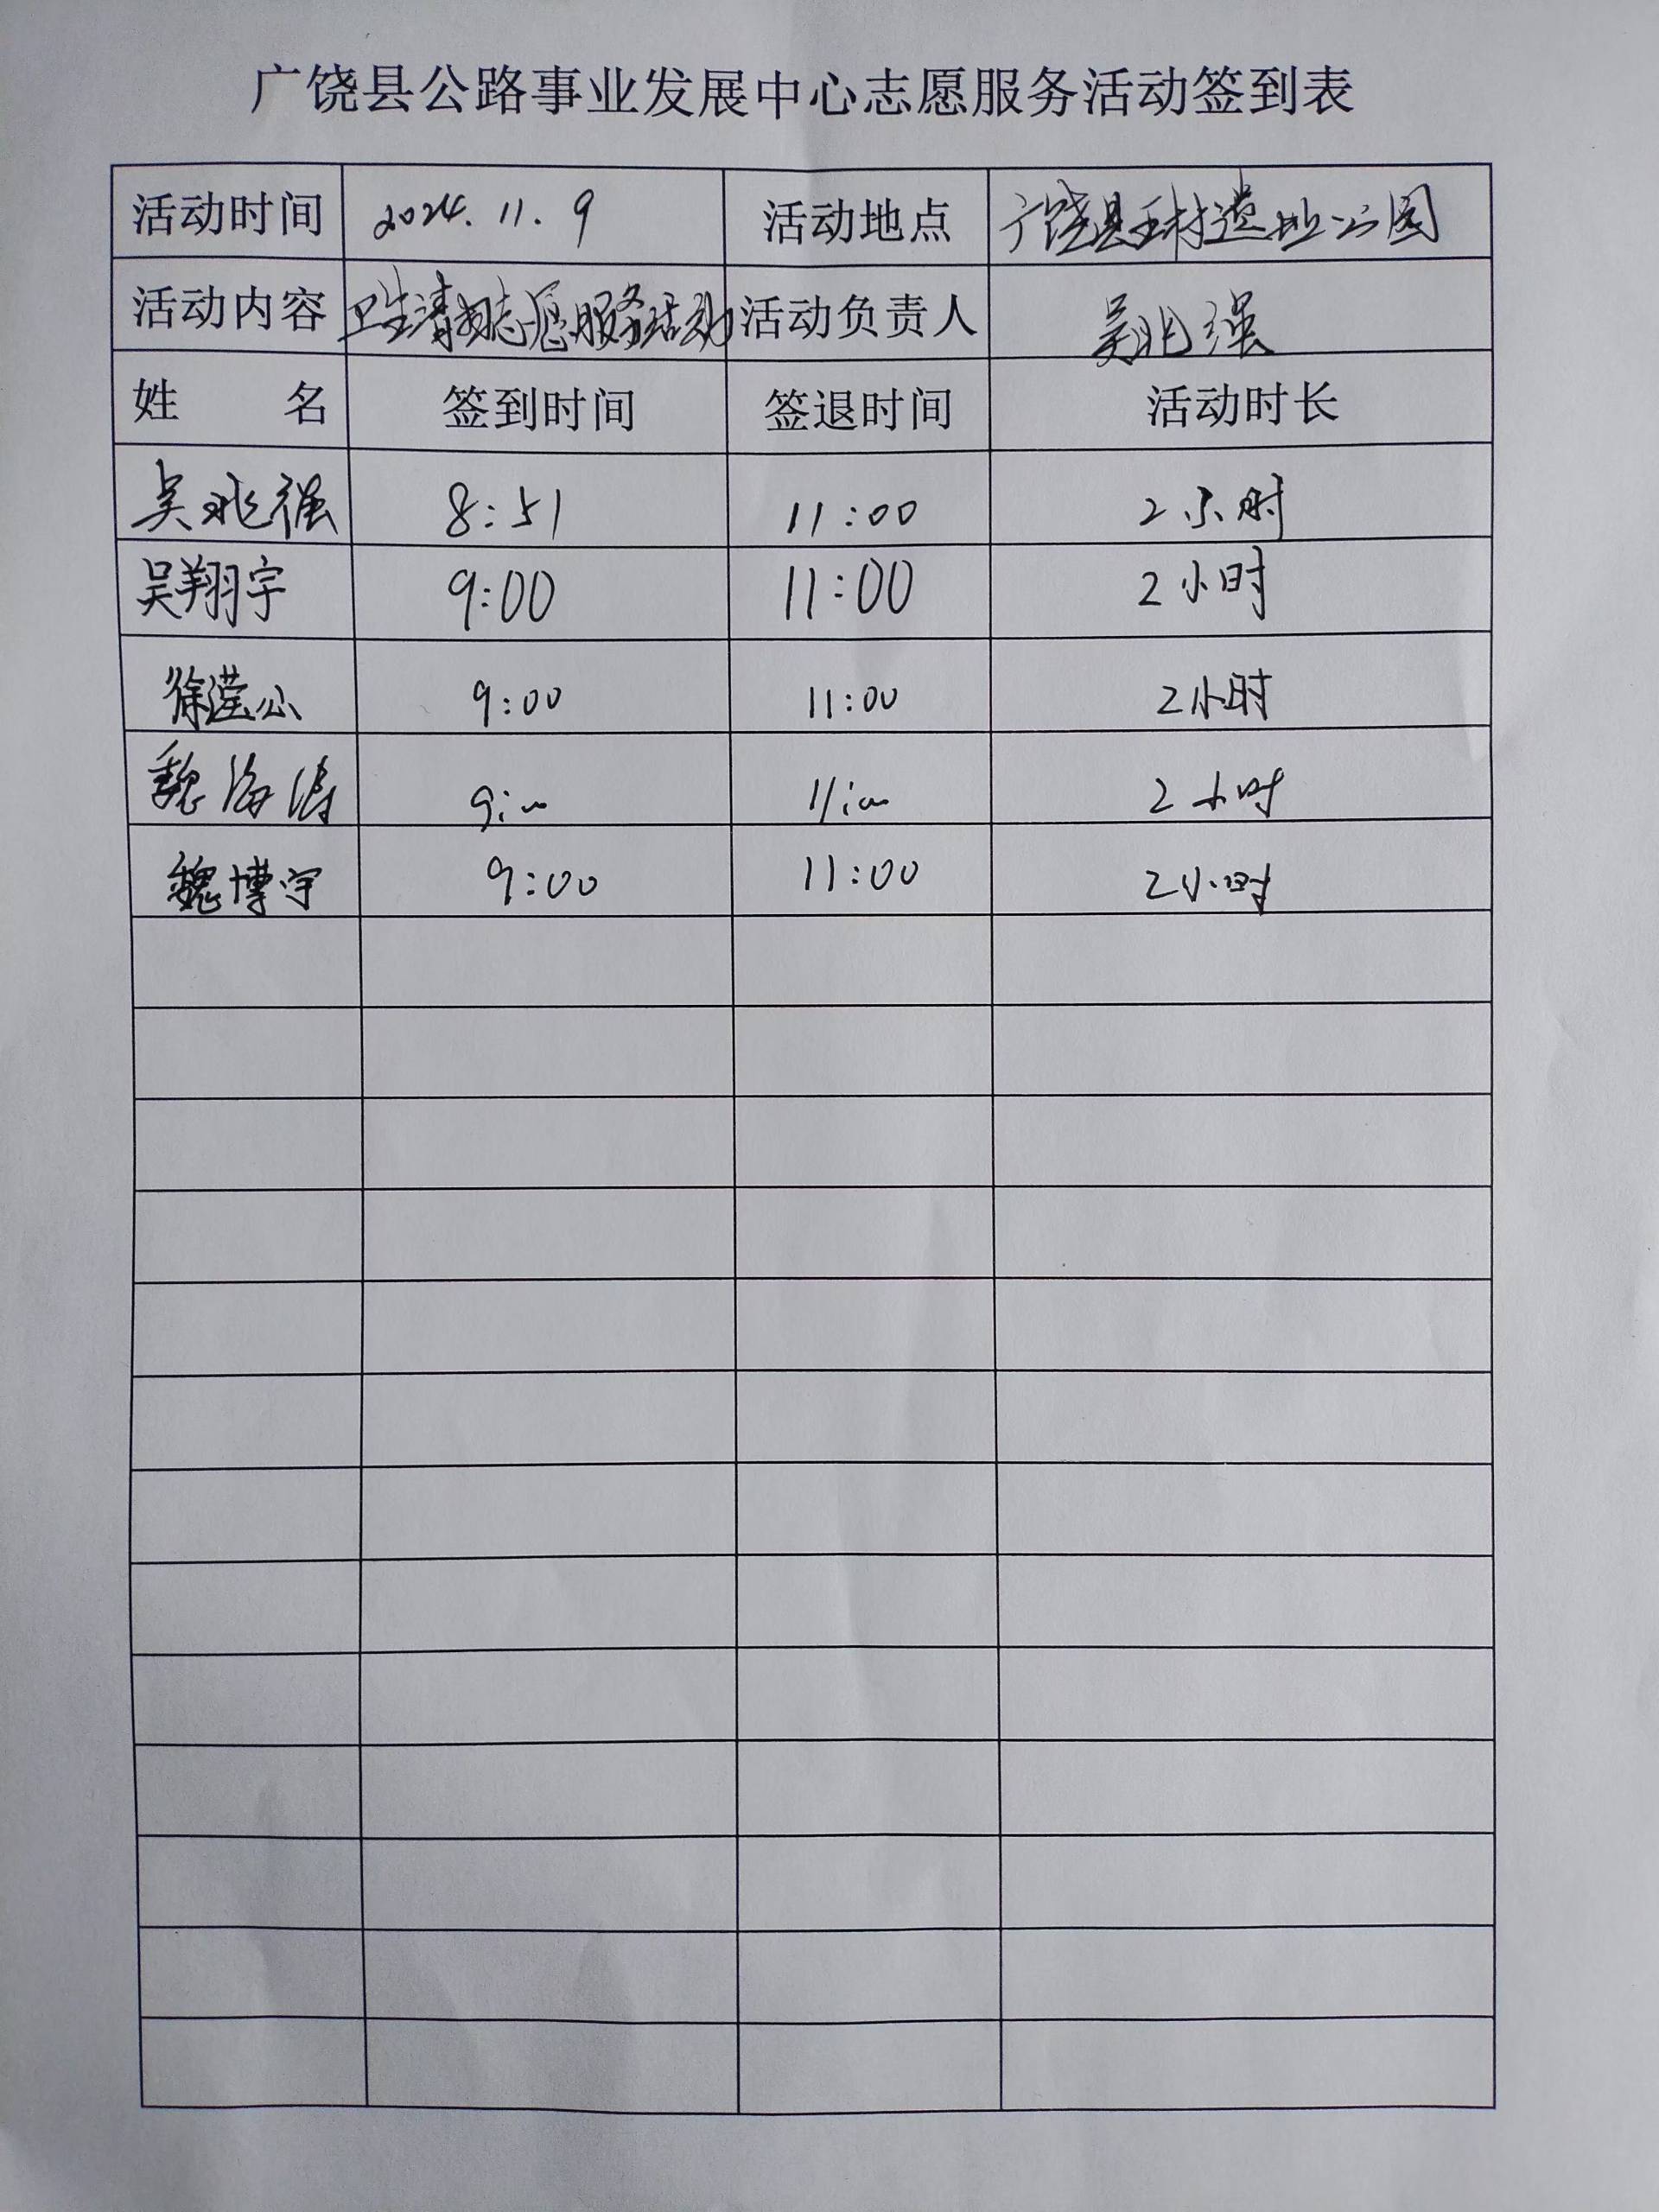 广饶县公路事业发展中心志愿服务活动签到表
活动时间 2024.11.9 活动地点 广饶县王村遗址公园
活动内容 卫生清扫志愿服务活动 活动负责人 吴兆强
姓 名 签到时间 签退时间 活动时长
吴兆强 8:51 11:00 2小时
吴翔宇 9:00 11:00 2小时
徐滢 9:00 11:00 2小时
魏海涛 9:00 11:00 2小时
魏博宇 9:00 11:00 2小时